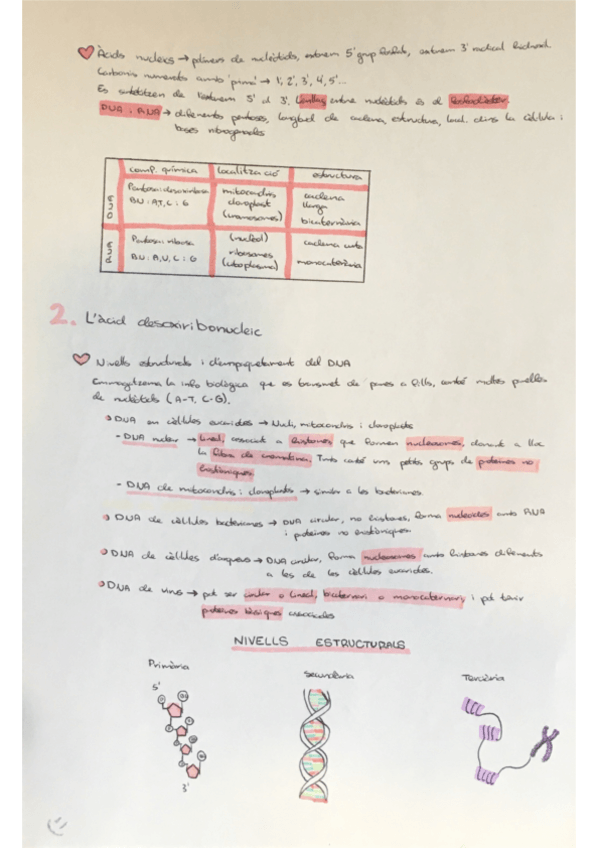 Àcids nucleics → polímers de nucleòtids, extrem 5' grup fosfat, extrem 3' radical hidroxil.
Carbonis numerats amb 'prima' → 1', 2', 3', 4', 5'...
Es sintetitzen de l'extrem 5' al 3'. L'enllaç entre nucleòtids és el fosfodièster.
DNA i RNA → diferents pentoses, longitud de cadena, estructura, local. dins la cèl·lula i
bases nitrogenades
comp. química localització estructura
DNA
Pentosa: desoxiribosa mitocondris cadena
B.N: A,T, C i G cloroplast llarga
(cromosomes) bicatenària
RNA
Pentosa: ribosa (nuclèol) cadena curta
B.N: A, U, C i G ribosomes monocatenària
(citoplasma)
2. L'àcid desoxiribonucleic
Nivells estructurals i d'empaquetament del DNA
Emmagatzema la info biològica que es transmet de pares a fills, conté moltes parelles
de nucleòtids (A-T, C-G).
DNA en cèl·lules eucariotes → Nucli, mitocondris i cloroplasts
- DNA nuclear → lineal, associat a histones que formen nucleosomes, donant a lloc
la fibra de cromatina. També conté uns petits grups de proteïnes no
històniques
- DNA de mitocondris i cloroplastos → similar a les bacterianes.
DNA de cèl·lules bacterianes → DNA circular, no histones, forma nucleoides amb RNA
i proteïnes no històniques.
DNA de cèl·lules d'arqueus → DNA circular, forma nucleosomes amb histones diferents
a les de les cèl·lules eucariotes.
DNA de virus → pot ser circular o lineal, bicatenari o monocatenari, i pot tenir
proteïnes bàsiques associades
NIVELLS ESTRUCTURALS
Primària Secundària Terciària
5'
3'